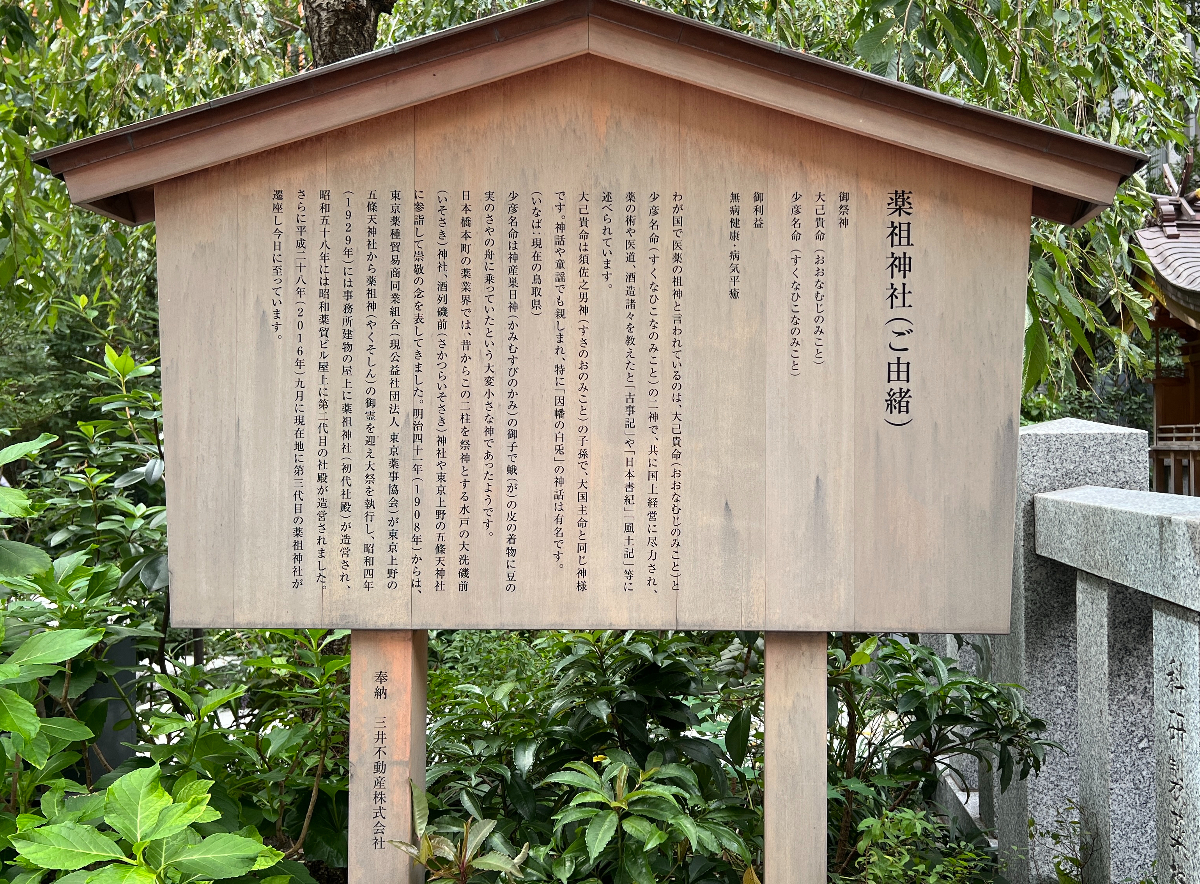 薬祖神社(ご由緒)
御祭神
大己貴命(おおなむじのみこと)
少彦名命(すくなひこなのみこと)
御利益
無病健康・病気平癒
わが国で医薬の祖神と言われているのは、大己貴命(おおなむじのみこと)と
少彦名命(すくなひこなのみこと)の二神で、共に国土経営に尽力され、
薬の術や医道、酒造諸々を教えたと「古事記」や「日本書紀」「風土記」等に
述べられています。
大己貴命は須佐之男神(すさのおのみこと)の子孫で、大国主命と同じ神様
です。神話や童謡でも親しまれ、特に「因幡の白兎」の神話は有名です。
(いなば:現在の鳥取県)
少彦名命は神産巣日神(かみむすびのかみ)の御子で蛾(が)の皮の着物に豆の
実のさやの舟に乗っていたという大変小さな神であったようです。
日本橋本町の薬業界では、昔からこの二柱を祭神とする水戸の大洗磯前
(いそさき)神社、酒列磯前(さかつらいそさき)神社や東京上野の五條天神社
に参詣して崇敬の念を表してきました。明治四十一年(1908年)からは、
東京薬種貿易商同業組合(現公益社団法人 東京薬事協会)が東京上野の
五條天神社から薬祖神(やくそしん)の御霊を迎え大祭を執行し、昭和四年
(1929年)には事務所建物の屋上に薬祖神社(初代社殿)が造営され、
昭和五十八年には昭和薬貿ビル屋上に第二代目の社殿が造営されました。
さらに平成二十八年(2016年)九月に現在地に第三代目の薬祖神社が
遷座し今日に至っています。
奉納 三井不動産株式会社